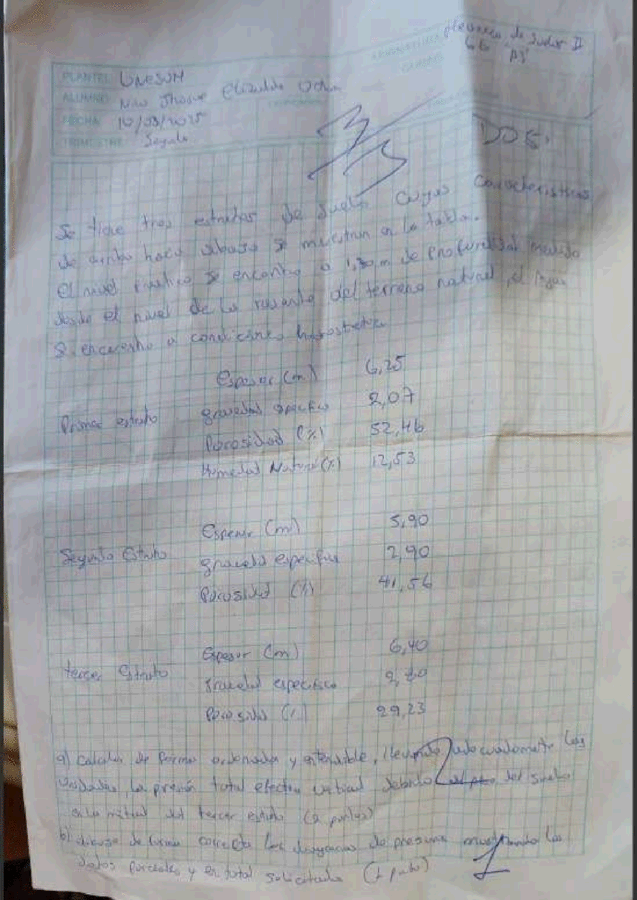 Mecanica de Suelos II
PLANTEL UNESUM
ALUMNO Elizalde
FECHA 10/03/2025
Segundo
3/3
Se tiene tres estratos de suelo cuyas características
de arriba hacia abajo se muestran en la tabla.
El nivel freático se encontro a 1,30 m de profundidad medido
desde el nivel de la rasante del terreno natural, el agua
se encuentra a condiciones
Espesor (m) 6,25
Primer estrato gravedad especifica 2,07
Porosidad (%) 52,46
Humedad Natural (%) 12,53
Espesor (m) 5,90
Segundo Estrato gravedad especifica 2,90
Porosidad (%) 41,56
Espesor (m) 6,40
tercer Estrato gravedad especifica
Porosidad (%) 29,23
a) calcular de forma ordenada y entendible, llevando adecuadamente las
unidades, la presión total efectiva vertical debido del suelo
en la mitad del tercer estrato (2 puntos)
2
b) dibuje de forma correcta los diagramas de presiones mostrando los
datos parciales y en total solicitados (1 punto)
1